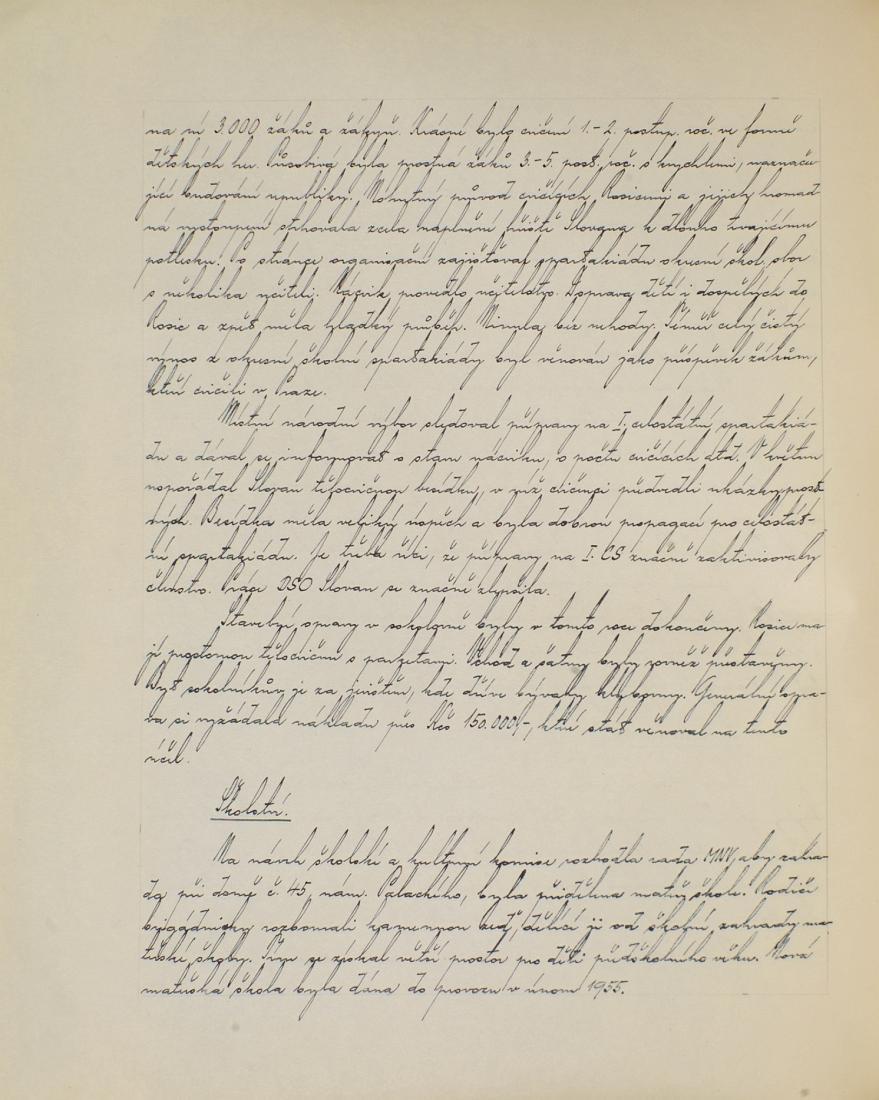 na ní 3.000 žáků a žákyň. Krásné bylo cvičení 1.-2. postup. roč. ve formě
dětských her. Působivá byla prostná žáků 3.-5. post. roč. s krychlemi, naznaču-
jící budování republiky. Mohutný průvod cvičících Rosicemi a jejich hromad-
ná vystoupení strhovala zcela naplněné hřiště Slovana k dlouho trvajícímu
potlesku. Po stránce organisační zajišťoval spartakiádu okresní škol. obor
s několika učiteli. Nácvik provedlo učitelstvo. Doprava dětí i dospělých do
Rosic a zpět měla hladký průběh. Minula bez nehody. Téměř celý čistý
výnos z okresní školní spartakiády byl věnován jako příspěvek žákům,
kteří cvičili v Praze.
Místní národní výbor sledoval přípravy na I. celostátní spartakiá-
du a dával se informovat o stavu nácviku, o počtu cvičících atd. V květnu
uspořádal Slovan tělocvičnou besídku, v níž cvičenci předvedli ukázky prost-
ných. Besídka měla veliký úspěch a byla dobrou propagací pro celostát-
ní spartakiádu. Je třeba říci, že přípravy na I. CS značně zaktivisovaly
členstvo. Práce DSO Slovan se značně zlepšila.
Stavební opravy v sokolovně byly v tomto roce dokončeny. Rosice ma-
jí prostornou tělocvičnu s parketami. Vchod a šatny byly rovněž přestavěny.
Byt sokolníkův je za jevištěm, kde dříve bývaly klubovny. Generální opra-
va si vyžádala nákladu přes Kčs 150.000,-, které stát věnoval na tento
účel.
Školství.
Na návrh školské a kulturní komise rozhodla rada MNV, aby zahra-
da při domě č. 45, nám. Palackého, byla přidělena mateř. škole. Rodiče
brigádnicky rozbourali kamennou zeď, dělící ji od školní zahrady ma-
teřské školy. Tím se získal větší prostor pro děti předškolního věku. Nová
mateřská škola byla dána do provozu v únoru 1955.